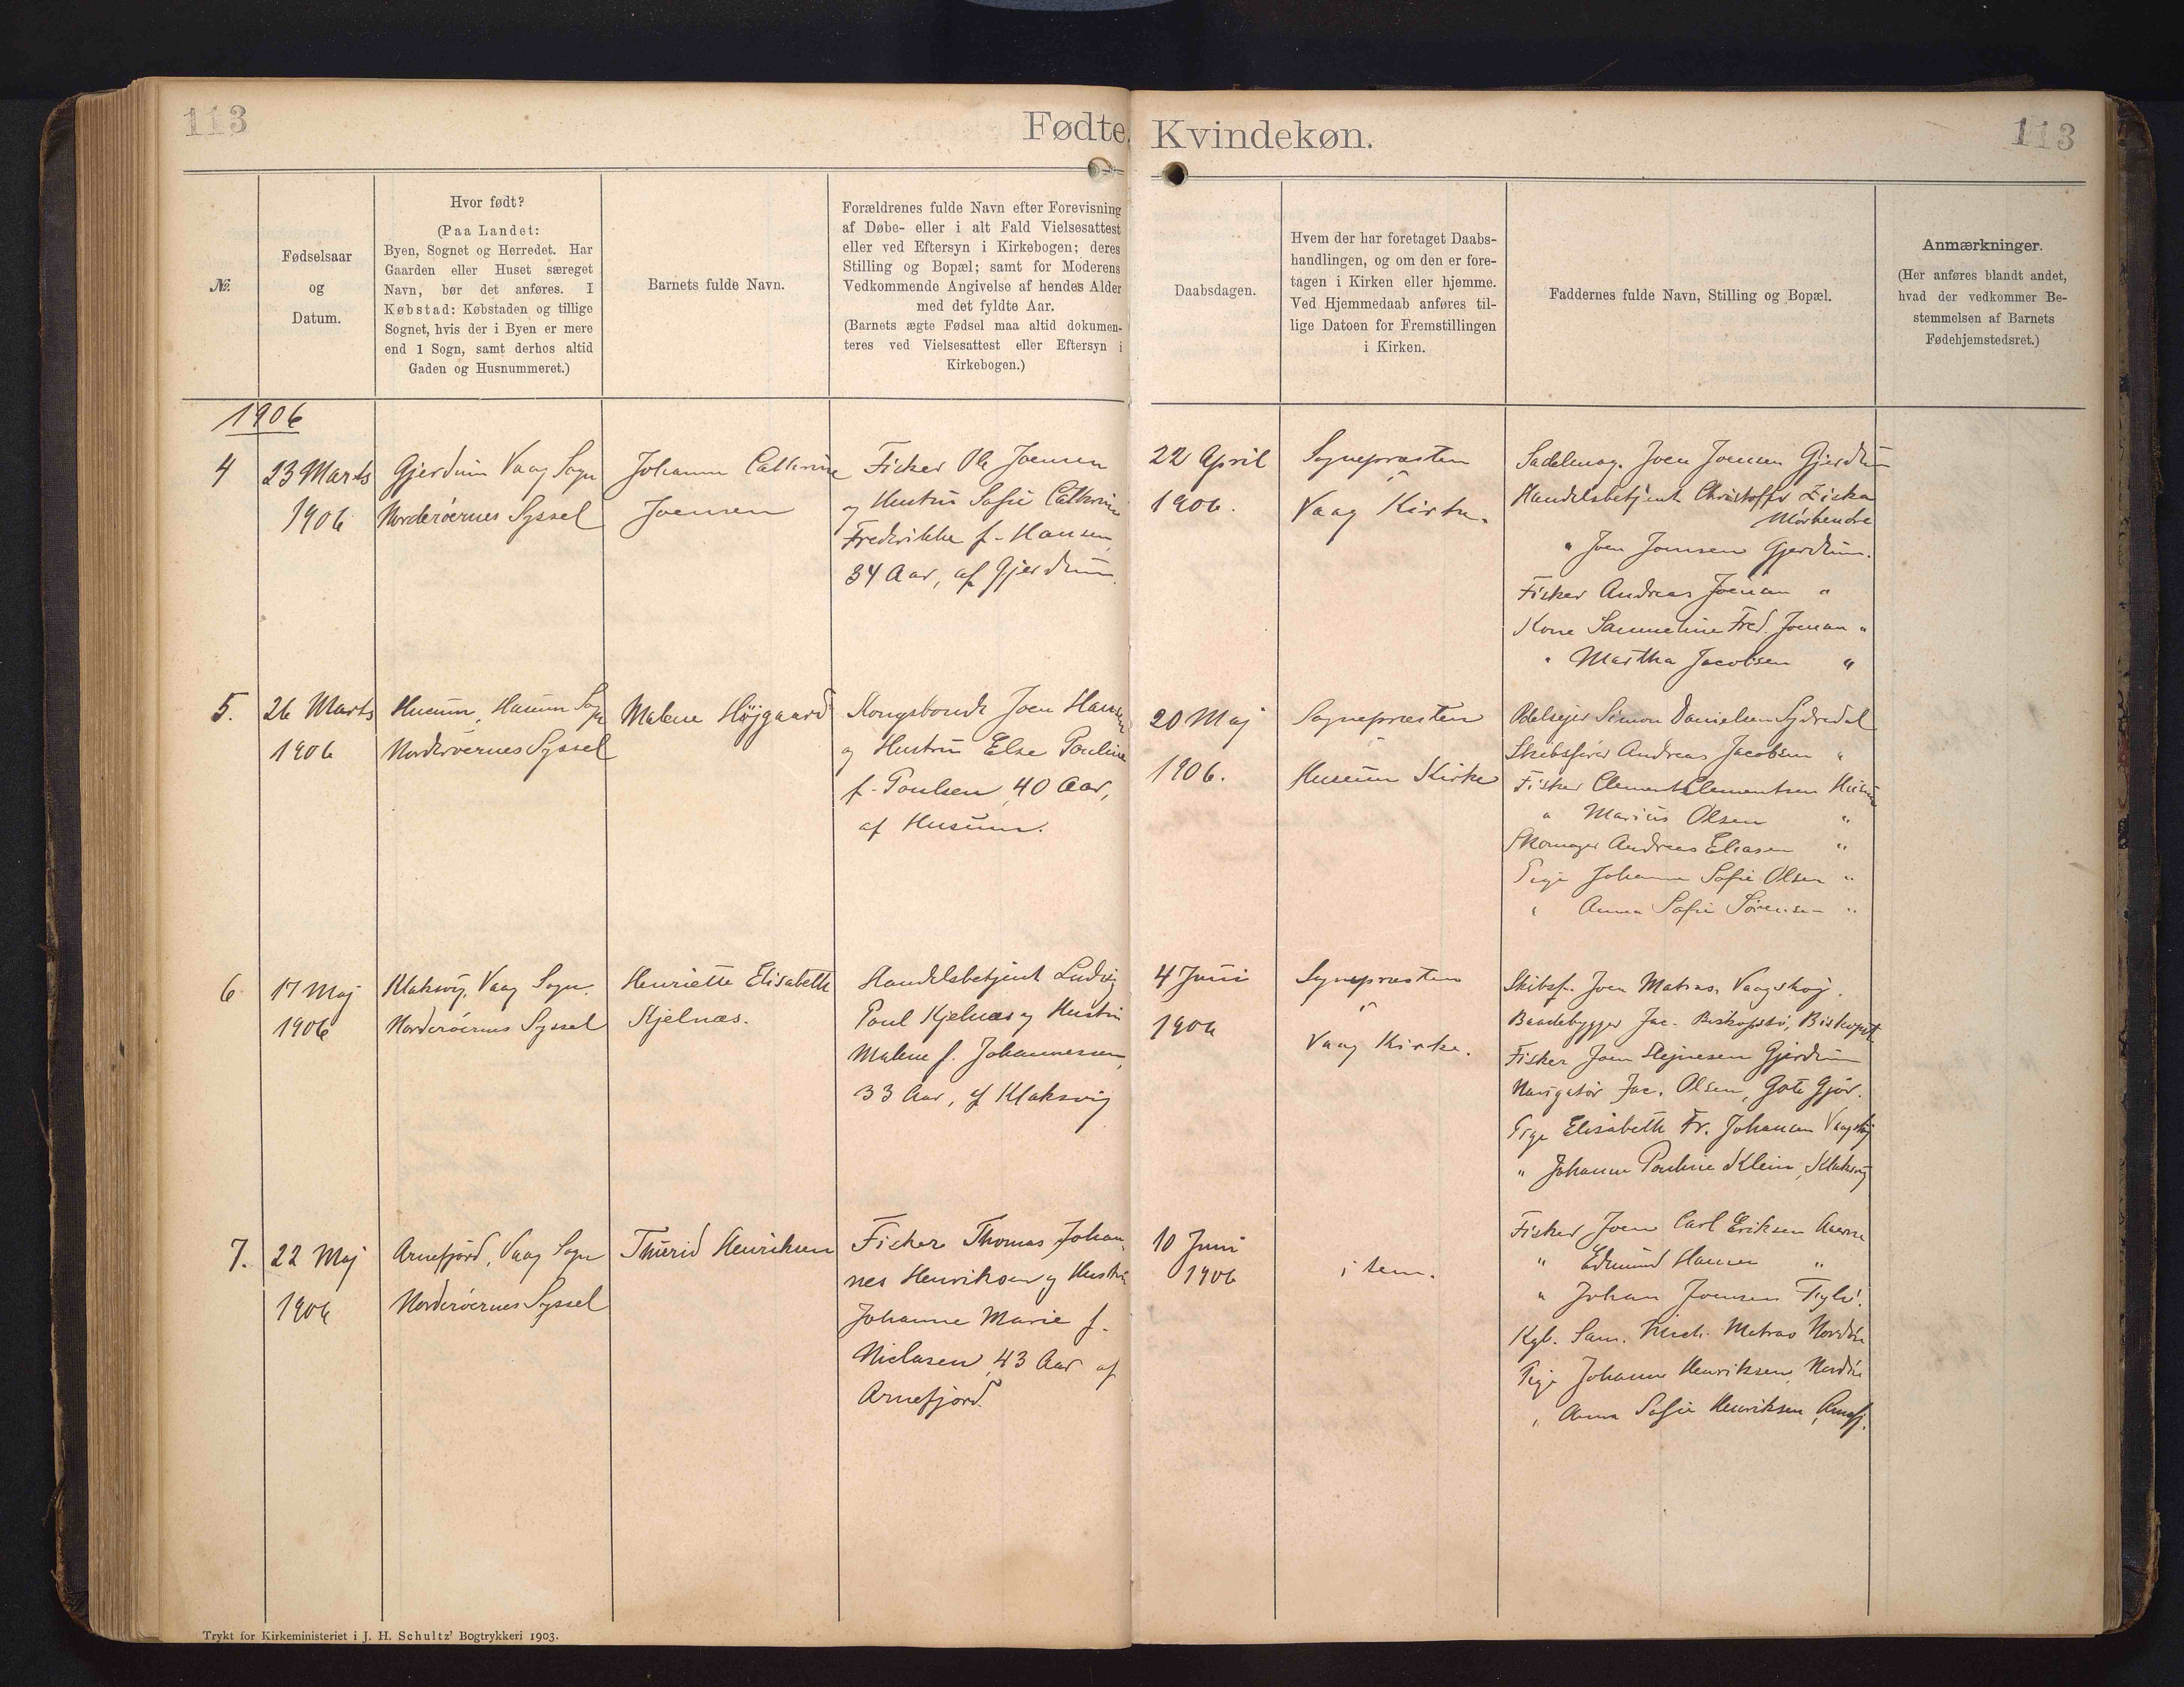 113
Fødte Kvindekøn.
113
№.
Fødselsaar
og
Datum.
Hvor født?
(Paa Landet:
Byen, Sognet og Herredet. Har
Gaarden eller Huset særeget
Navn, bør det anføres. I
Købstad: Købstaden og tillige
Sognet, hvis der i Byen er mere
end 1 Sogn, samt derhos altid
Gaden og Husnummeret.)
Barnets fulde Navn.
Forældrenes fulde Navn efter Forevisning
af Døbe- eller i alt Fald Vielsesattest
eller ved Eftersyn i Kirkebogen; deres
Stilling og Bopæl; samt for Moderens
Vedkommende Angivelse af hendes Alder
med det fyldte Aar.
(Barnets ægte Fødsel maa altid dokumen-
teres ved Vielsesattest eller Eftersyn i
Kirkebogen.)
Daabsdagen.
Hvem der har foretaget Daabs-
handlingen, og om den er fore-
tagen i Kirken eller hjemme.
Ved Hjemmedaab anføres til-
lige Datoen for Fremstillingen
i Kirken.
Faddernes fulde Navn, Stilling og Bopæl.
Anmærkninger.
(Her anføres blandt andet,
hvad der vedkommer Be-
stemmelsen af Barnets
Fødehjemstedsret.)
1906
4
23 Marts
1906
Gjerdum Vaag Sogn
Norderøernes Syssel
Johanne Cathrine
Joensen
Fisker Ole Joensen
og Hustru Sofie Cathrine
Frederikke f. Hansen,
34 Aar, af Gjerdum.
22 April
1906.
Sognepræsten
Vaag Kirke.
Sadelmag. Joen Joensen Gjerdum
Handelsbetjent Christoffer Ziska
" Joen Joensen Gjerdum.
Fisker Andreas Joensen "
Kone Sammeline Fred. Joensen "
" Martha Jacobsen "
5.
26 Marts
1906
Husum, Husum Sogn
Norderøernes Syssel
Malene Højgaard
Kongsbonde Joen Hansen
og Hustru Else Pouline
f. Poulsen, 40 Aar,
af Husum.
20 Maj
1906.
Sognepræsten
Husum Kirke
Odelsejer Simon Danielsen Sydredal
Skibsfører Andreas Jacobsen "
Fisker Clement Clementsen Husum
" Marius Olsen "
Skomager Andreas Eliasen "
Pige Johanne Sofie Olsen "
" Anna Sofie Sørensen "
6
17 Maj
1906
Klaksvig, Vaag Sogn.
Norderøernes Syssel
Henriette Elisabeth
Kjelnæs.
Handelsbetjent Ludvig
Poul Kjelnæs og Hustru
Malene f. Johannessen,
33 Aar, af Klaksvig
4 Juni
1906
Sognepræsten
Vaag Kirke.
Skibsf. Joen Matras, Vaagshøj.
Baadebygger Jac. Biskopstø, Biskopst.
Fisker Joen Gjerdum
Navigatør Jac. Olsen, Gote Gjov.
Pige Elisabeth Fr. Johansen Vaagshøj
" Johanne Pouline Klein, Klaksvig
7.
22 Maj
1906
Arnefjord, Vaag Sogn
Norderøernes Syssel
Thurid Henriksen
Fisker Thomas Johan-
nes Henriksen og Hustru
Johanne Marie f.
Niclasen, 43 Aar af
Arnefjord.
10 Juni
1906
item.
Fisker Joen Carl Eriksen
" Edmund Hansen "
" Johan Joensen
Kgb. Sam. Mich. Matras
Pige Johanne Henriksen,
" Anna Sofie Henriksen, Arnefj.
Trykt for Kirkeministeriet i J. H. Schultz' Bogtrykkeri 1903.